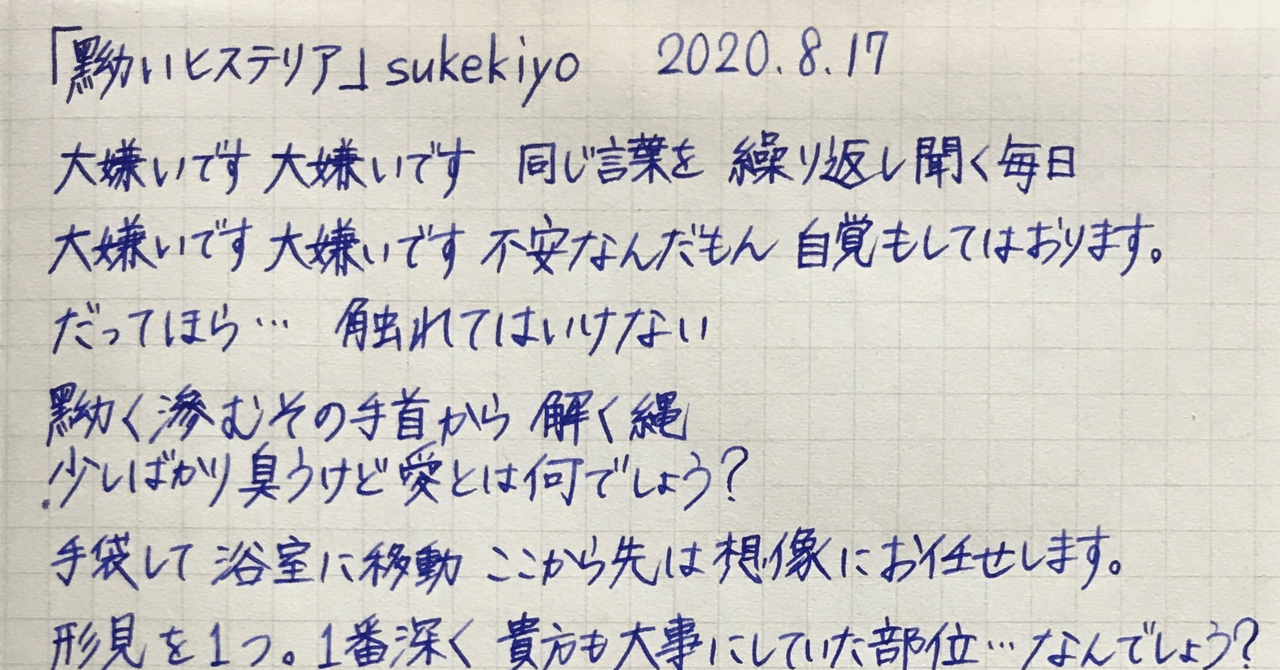 「黝いヒステリア」sukekiyo 2020.8.17
大嫌いです 大嫌いです 同じ言葉を 繰り返し聞く毎日
大嫌いです 大嫌いです 不安なんだもん 自覚もしてはおります。
だってほら… 触れてはいけない
黝く滲むその手首から 解く縄
少しばかり臭うけど愛とは何でしょう?
手袋して 浴室に移動 ここから先は想像にお任せします。
形見を1つ。1番深く 貴方も大事にしていた部位…なんでしょう?